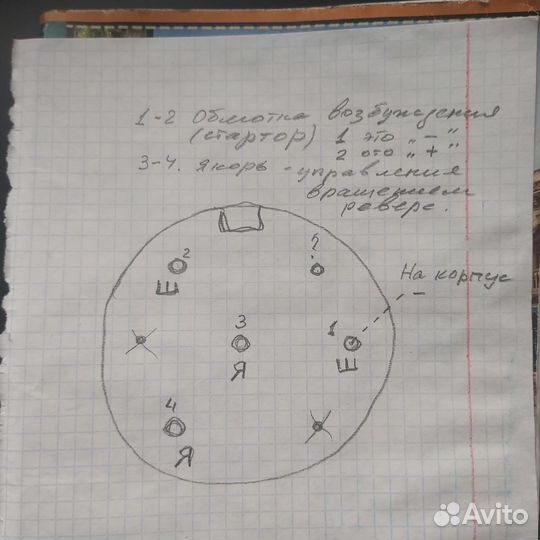 1-2 Обмотка возбуждения
(стартор) 1 это „ - "
2 ото „ + "
3-4. якорь - управления
вращением
реверс.
2
?
Ш
На корпус
-
3
1
Я
Ш
4
Я
Avito